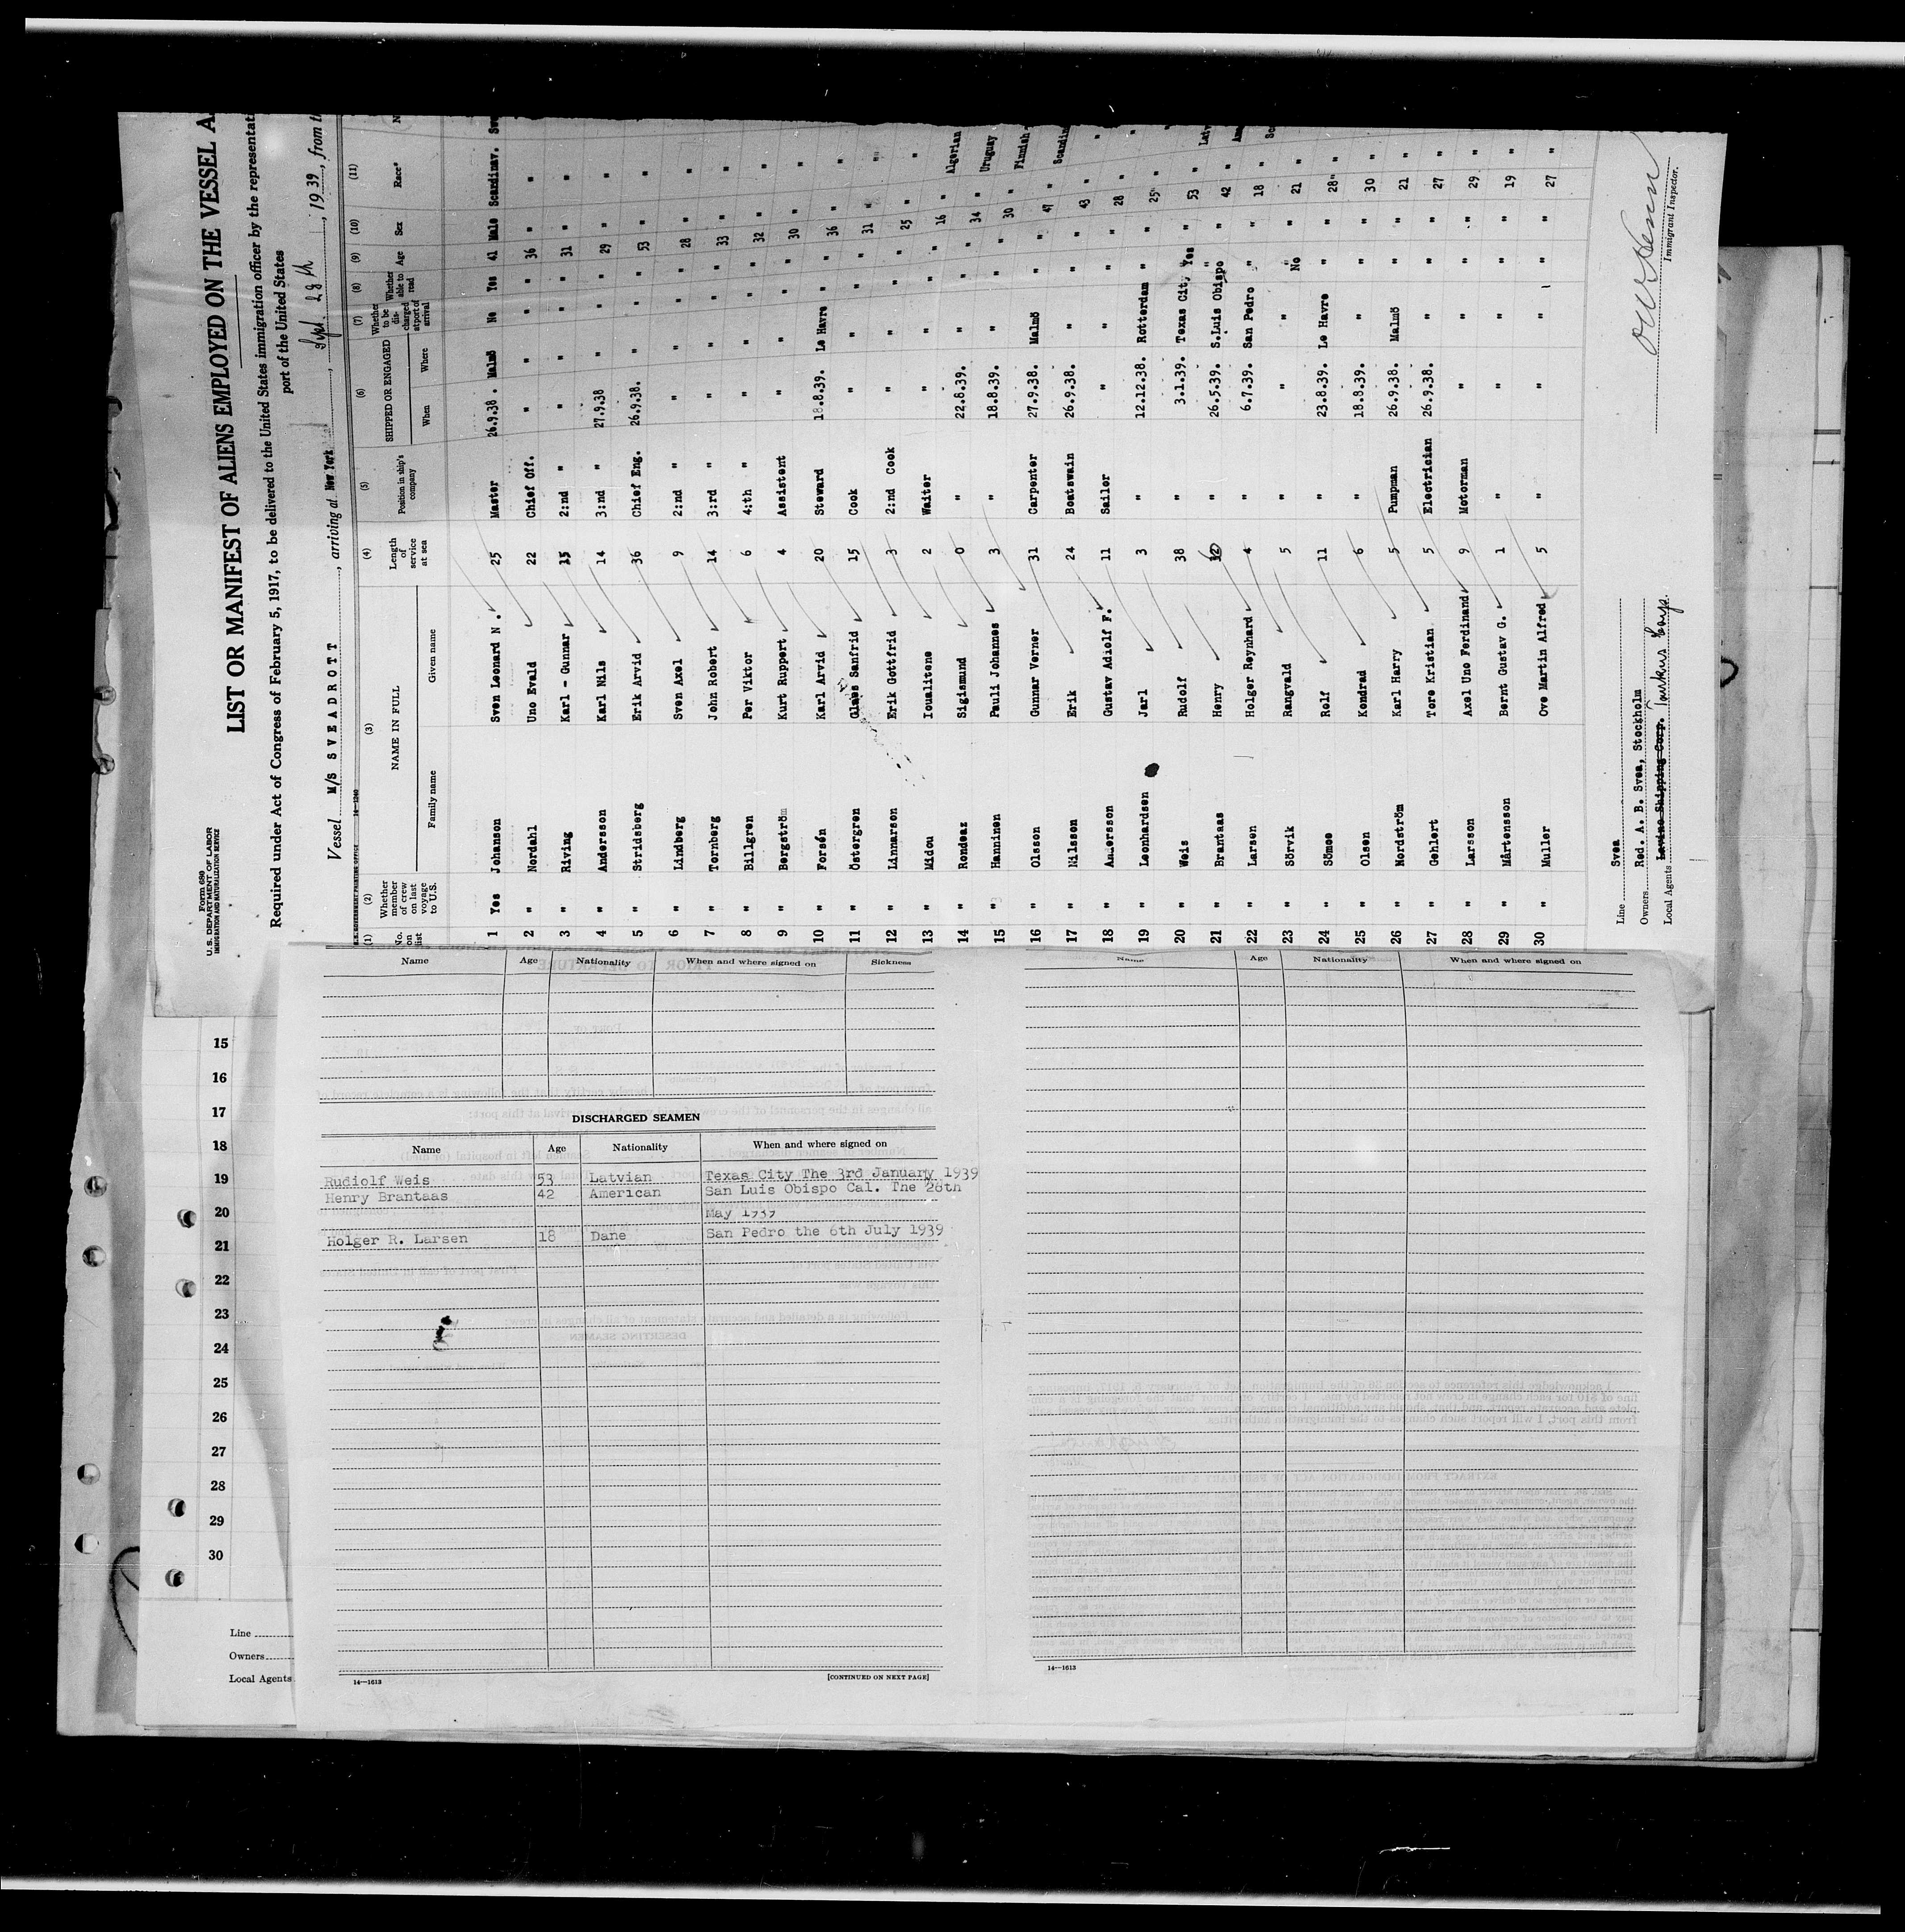 Form 680
U. S. DEPARTMENT OF LABOR
IMMIGRATION AND NATURALIZATION SERVICE
LIST OR MANIFEST OF ALIENS EMPLOYED ON THE VESSEL A
Required under Act of Congress of February 5, 1917, to be delivered to the United States immigration officer by the representati
port of the United States
Vessel M/S SVEADROTT, arriving at New York, Sept. 28th, 1939, from t
U.S. GOVERNMENT PRINTING OFFICE 14—1240
(1) (2) (3) (4) (5) (6) (7) (8) (9) (10) (11)
No. on list Whether member of crew on last voyage to U.S. NAME IN FULL Family name Given name Length of service at sea Position in ship's company SHIPPED OR ENGAGED When Where Whether to be discharged at port of arrival Whether able to read Age Sex Race* N
1 Yes Johanson Sven Leonard N. 25 Master 26.9.38. Malmö No Yes 41 Male Scandinav. Swe
2 " Nordahl Uno Evald 22 Chief Off. " " " " 36 " "
3 " Riving Karl - Gunnar 13 2:nd " " " " " 31 " "
4 " Andersson Karl Nils 14 3:nd " 27.9.38 " " " 29 " "
5 " Stridsberg Erik Arvid 36 Chief Eng. 26.9.38. " " " 53 " "
6 " Lindberg Sven Axel 9 2:nd " " " " " 28 " "
7 " Tornberg John Robert 14 3:rd " " " " " 33 " "
8 " Billgren Per Viktor 6 4:th " " " " " 32 " "
9 " Bergström Kurt Ruppert 4 Assistent " " " " 30 " "
10 " Forsén Karl Arvid 20 Steward 18.8.39. Le Havre " " 36 " "
11 " Östergren Claes Sanfrid 15 Cook " " " " 31 " "
12 " Linnarson Erik Gottfrid 3 2:nd Cook " " " " 25 " "
13 " Midou Ioualitene 2 Waiter " " " " 16 " Algerian
14 " Rondeaz Sigismund 0 " 22.8.39. " " " 34 " Uruguay
15 " Hanninen Pauli Johannes 3 " 18.8.39. " " " 30 " Finnish
16 " Olsson Gunnar Verner 31 Carpenter 27.9.38. Malmö " " 47 " Scandin
17 " Nilsson Erik 24 Boatswain 26.9.38. " " " 43 " "
18 " Andersson Gustav Adiolf F. 11 Sailor " " " " 28 " "
19 " Leonhardsen Jarl 3 " 12.12.38. Rotterdam " " 25 " "
20 " Weis Rudolf 38 " 3.1.39. Texas City Yes " 53 " Latv
21 " Brantaas Henry " 26.5.39. S.Luis Obispo " " 42 " Ame
22 " Larsen Holger Reynhard 4 " 6.7.39. San Pedro " " 18 " Sc
23 " Sörvik Rangvald 5 " " " No " 21 " "
24 " Sömoe Rolf 11 " 23.8.39. Le Havre " " 28 " "
25 " Olsen Kondrad 6 " 18.8.39. " " " 30 " "
26 " Nordström Karl Harry 5 Pumpman 26.9.38. Malmö " " 21 " "
27 " Gehlert Tore Kristian 5 Electrician 26.9.38. " " " 27 " "
28 " Larsson Axel Uno Ferdinand 9 Motorman " " " " 29 " "
29 " Mårtensson Bernt Gustav G. 1 " " " " " 19 " "
30 " Muller Ove Martin Alfred 5 " " " " " 27 " "
Line Svea
Owners Red. A. B. Svea, Stockholm
Local Agents Lavino Shipping Corp.
Immigrant Inspector.
Name Age Nationality When and where signed on Sickness
Name Age Nationality When and where signed on
DISCHARGED SEAMEN
Name Age Nationality When and where signed on
Rudiolf Weis 53 Latvian Texas City The 3rd January 1939
Henry Brantaas 42 American San Luis Obispo Cal. The 26th
May 1939
Holger R. Larsen 18 Dane San Pedro the 6th July 1939
14—1613
[CONTINUED ON NEXT PAGE]
14—1613
15
16
17
18
19
20
21
22
23
24
25
26
27
28
29
30
Line
Owners
Local Agents